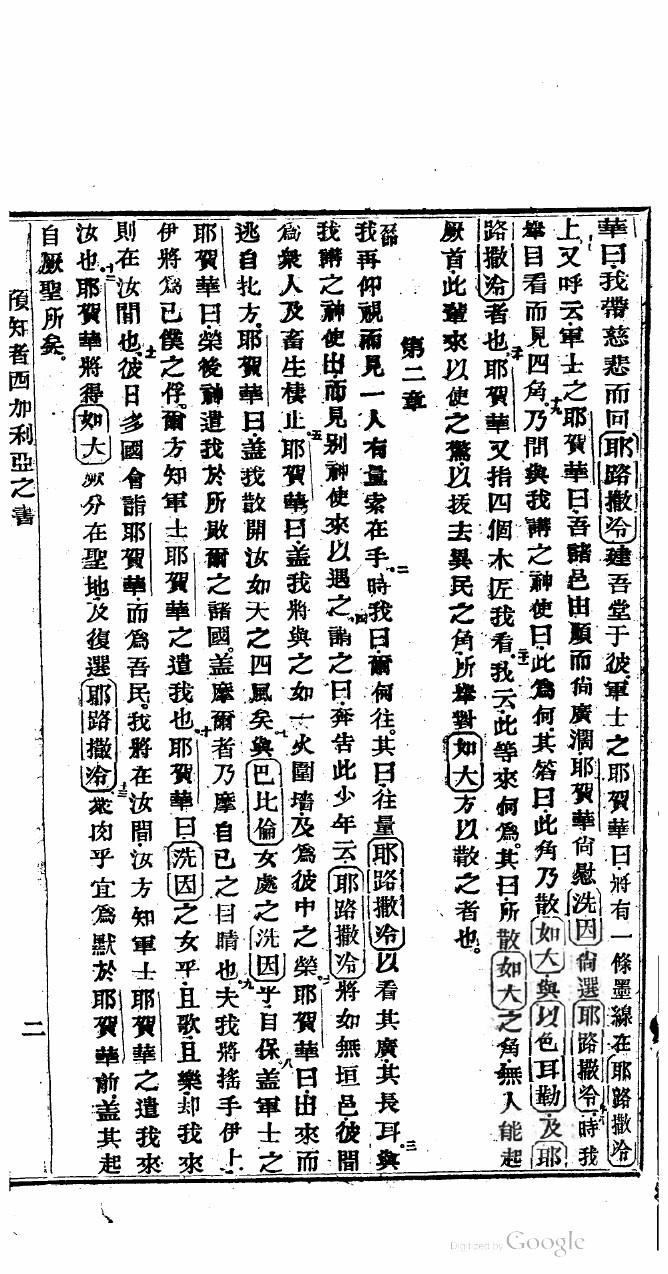 華曰我帶慈悲而回耶路撒冷建吾堂于彼軍士之耶賀華曰將有一條墨線在耶路撒冷
上又呼云軍士之耶賀華曰吾諸邑由順而尙廣濶耶賀華尙慰洗因尙選耶路撒冷十八時我
舉目看而見四角十九乃問與我講之神使曰此爲何其答曰此角乃散如大與以色耳勒及耶
路撒冷者也二十耶賀華又指四個木匠我看二十一我云此等來何爲其曰所散如大之角無人能起
厥首此輩來以使之驚以拔去異民之角所舉對如大方以散之者也
第二章
一節我再仰視而見一人有量索在手二時我曰爾何往其曰往量耶路撒冷以看其廣其長耳三與
我講之神使出而見别神使來以遇之四謂之曰奔告此少年云耶路撒冷將如無垣邑彼間
爲衆人及畜生棲止五耶賀華曰蓋我將與之如一火圍墻及爲彼中之榮六耶賀華曰出來而
逃自北方耶賀華曰蓋我散開汝如天之四風矣七與巴比倫女處之洗因乎自保八蓋軍士之
耶賀華曰榮後神遣我於所敗爾之諸國蓋摩爾者乃摩自己之目睛也九夫我將搖手伊上
伊將爲己僕之俘爾方知軍士耶賀華之遣我也十耶賀華曰洗因之女乎且歌且樂却我來
則在汝間也十一彼日多國會詣耶賀華而爲吾民我將在汝間汝方知軍士耶賀華之遣我來
汝也十二耶賀華將得如大厥分在聖地及復選耶路撒冷十三衆肉乎宜爲默於耶賀華前蓋其起
自厥聖所矣
預知者西加利亞之書
二
Digitized by Google